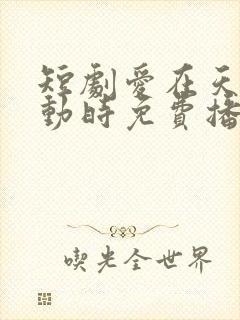 短劇愛在天
動時免費播
喫光全世界